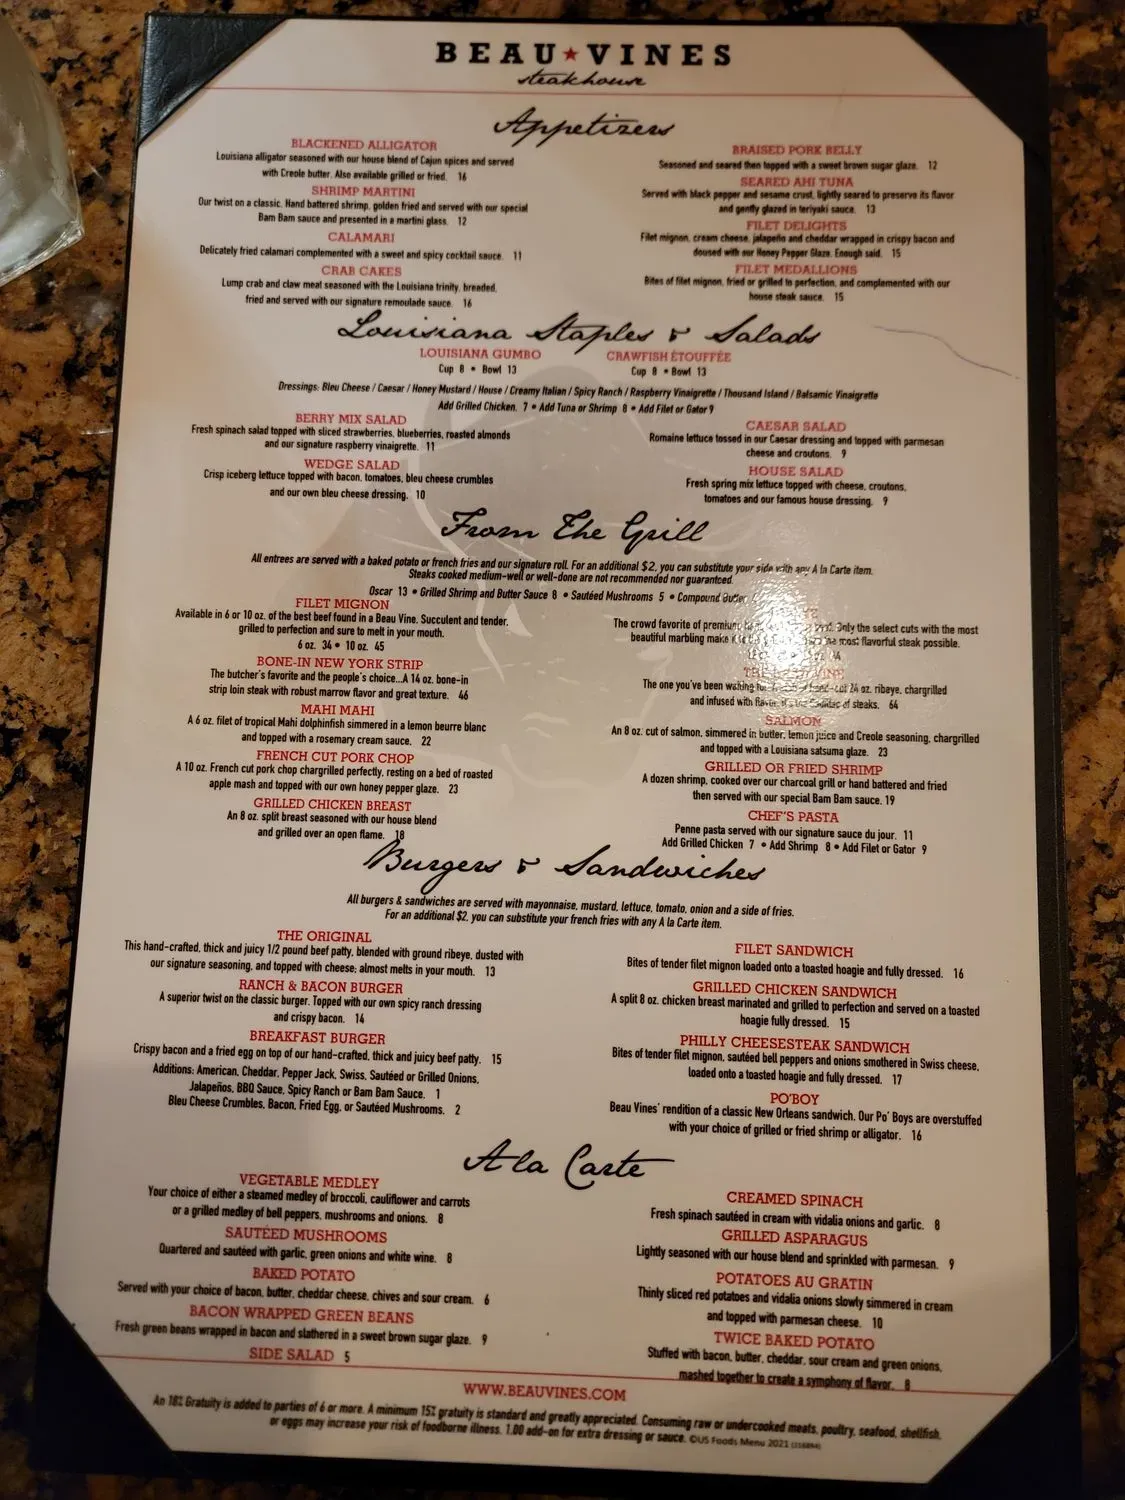 BEAU★VINES
steakhouse
Appetizers
BLACKENED ALLIGATOR
Louisiana alligator seasoned with our house blend of Cajun spices and served
with Creole butter. Also available grilled or fried. 16
SHRIMP MARTINI
Our twist on a classic. Hand battered shrimp, golden fried and served with our special
Bam Bam sauce and presented in a martini glass. 12
CALAMARI
Delicately fried calamari complemented with a sweet and spicy cocktail sauce. 11
CRAB CAKES
Lump crab and claw meat seasoned with the Louisiana trinity, breaded,
fried and served with our signature remoulade sauce. 16
BRAISED PORK BELLY
Seasoned and seared then topped with a sweet brown sugar glaze. 12
SEARED AHI TUNA
Served with black pepper and sesame crust, lightly seared to preserve its flavor
and gently glazed in teriyaki sauce. 13
FILET DELIGHTS
Filet mignon, cream cheese, jalapeño and cheddar wrapped in crispy bacon and
doused with our Honey Pepper Glaze. Enough said. 15
FILET MEDALLIONS
Bites of filet mignon, fried or grilled to perfection, and complemented with our
house steak sauce. 15
Louisiana Staples & Salads
LOUISIANA GUMBO
Cup 8 • Bowl 13
CRAWFISH ÉTOUFFÉE
Cup 8 • Bowl 13
Dressings: Bleu Cheese / Caesar / Honey Mustard / House / Creamy Italian / Spicy Ranch / Raspberry Vinaigrette / Thousand Island / Balsamic Vinaigrette
Add Grilled Chicken. 7 • Add Tuna or Shrimp 8 • Add Filet or Gator 9
BERRY MIX SALAD
Fresh spinach salad topped with sliced strawberries, blueberries, roasted almonds
and our signature raspberry vinaigrette. 11
WEDGE SALAD
Crisp iceberg lettuce topped with bacon, tomatoes, bleu cheese crumbles
and our own bleu cheese dressing. 10
CAESAR SALAD
Romaine lettuce tossed in our Caesar dressing and topped with parmesan
cheese and croutons. 9
HOUSE SALAD
Fresh spring mix lettuce topped with cheese, croutons,
tomatoes and our famous house dressing. 9
From The Grill
All entrees are served with a baked potato or french fries and our signature roll. For an additional $2, you can substitute your side with any A la Carte item.
Steaks cooked medium-well or well-done are not recommended nor guaranteed.
Oscar 13 • Grilled Shrimp and Butter Sauce 8 • Sautéed Mushrooms 5 • Compound Butter
FILET MIGNON
Available in 6 or 10 oz. of the best beef found in a Beau Vine. Succulent and tender,
grilled to perfection and sure to melt in your mouth.
6 oz. 34 • 10 oz. 45
BONE-IN NEW YORK STRIP
The butcher's favorite and the people's choice...A 14 oz. bone-in
strip loin steak with robust marrow flavor and great texture. 46
MAHI MAHI
A 6 oz. filet of tropical Mahi dolphinfish simmered in a lemon beurre blanc
and topped with a rosemary cream sauce. 22
FRENCH CUT PORK CHOP
A 10 oz. French cut pork chop chargrilled perfectly, resting on a bed of roasted
apple mash and topped with our own honey pepper glaze. 23
GRILLED CHICKEN BREAST
An 8 oz. split breast seasoned with our house blend
and grilled over an open flame. 18
The crowd favorite of premium Only the select cuts with the most
beautiful marbling make most flavorful steak possible.
The one you've been waiting 24 oz. ribeye, chargrilled
and infused with flavor. of steaks. 64
SALMON
An 8 oz. cut of salmon, simmered in butter, lemon juice and Creole seasoning, chargrilled
and topped with a Louisiana satsuma glaze. 23
GRILLED OR FRIED SHRIMP
A dozen shrimp, cooked over our charcoal grill or hand battered and fried
then served with our special Bam Bam sauce. 19
CHEF'S PASTA
Penne pasta served with our signature sauce du jour. 11
Add Grilled Chicken 7 • Add Shrimp 8 • Add Filet or Gator 9
Burgers & Sandwiches
All burgers & sandwiches are served with mayonnaise, mustard, lettuce, tomato, onion and a side of fries.
For an additional $2, you can substitute your french fries with any A la Carte item.
THE ORIGINAL
This hand-crafted, thick and juicy 1/2 pound beef patty, blended with ground ribeye, dusted with
our signature seasoning, and topped with cheese; almost melts in your mouth. 13
RANCH & BACON BURGER
A superior twist on the classic burger. Topped with our own spicy ranch dressing
and crispy bacon. 14
BREAKFAST BURGER
Crispy bacon and a fried egg on top of our hand-crafted, thick and juicy beef patty. 15
Additions: American, Cheddar, Pepper Jack, Swiss, Sautéed or Grilled Onions,
Jalapeños, BBQ Sauce, Spicy Ranch or Bam Bam Sauce. 1
Bleu Cheese Crumbles, Bacon, Fried Egg, or Sautéed Mushrooms. 2
FILET SANDWICH
Bites of tender filet mignon loaded onto a toasted hoagie and fully dressed. 16
GRILLED CHICKEN SANDWICH
A split 8 oz. chicken breast marinated and grilled to perfection and served on a toasted
hoagie fully dressed. 15
PHILLY CHEESESTEAK SANDWICH
Bites of tender filet mignon, sautéed bell peppers and onions smothered in Swiss cheese,
loaded onto a toasted hoagie and fully dressed. 17
PO'BOY
Beau Vines' rendition of a classic New Orleans sandwich. Our Po' Boys are overstuffed
with your choice of grilled or fried shrimp or alligator. 16
A la Carte
VEGETABLE MEDLEY
Your choice of either a steamed medley of broccoli, cauliflower and carrots
or a grilled medley of bell peppers, mushrooms and onions. 8
SAUTÉED MUSHROOMS
Quartered and sautéed with garlic, green onions and white wine. 8
BAKED POTATO
Served with your choice of bacon, butter, cheddar cheese, chives and sour cream. 6
BACON WRAPPED GREEN BEANS
Fresh green beans wrapped in bacon and slathered in a sweet brown sugar glaze. 9
SIDE SALAD 5
CREAMED SPINACH
Fresh spinach sautéed in cream with vidalia onions and garlic. 8
GRILLED ASPARAGUS
Lightly seasoned with our house blend and sprinkled with parmesan. 9
POTATOES AU GRATIN
Thinly sliced red potatoes and vidalia onions slowly simmered in cream
and topped with parmesan cheese. 10
TWICE BAKED POTATO
Stuffed with bacon, butter, cheddar, sour cream and green onions,
mashed together to create a symphony of flavor. 8
WWW.BEAUVINES.COM
An 18% Gratuity is added to parties of 6 or more. A minimum 15% gratuity is standard and greatly appreciated. Consuming raw or undercooked meats, poultry, seafood, shellfish,
or eggs may increase your risk of foodborne illness. 1.00 add-on for extra dressing or sauce. ©US Foods Menu 2021